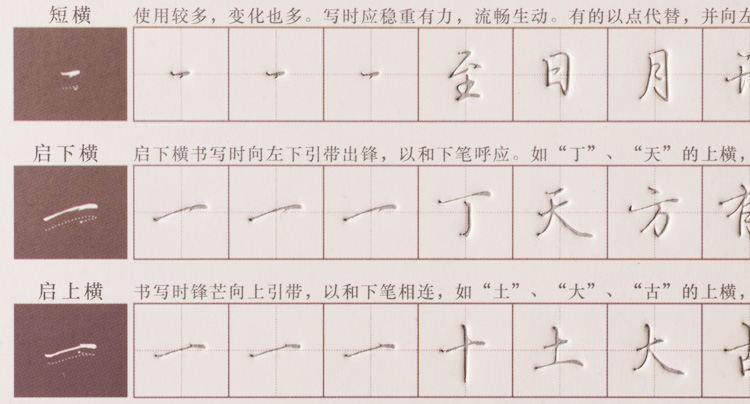 短横 使用较多，变化也多。写时应稳重有力，流畅生动。有的以点代替，并向左
一 一 一 至 日 月
启下横 启下横书写时向左下引带出锋，以和下笔呼应。如“丁”、“天”的上横，
一 一 一 丁 天 方 有
启上横 书写时锋芒向上引带，以和下笔相连，如“土”、“大”、“古”的上横，
一 一 一 十 土 大 古